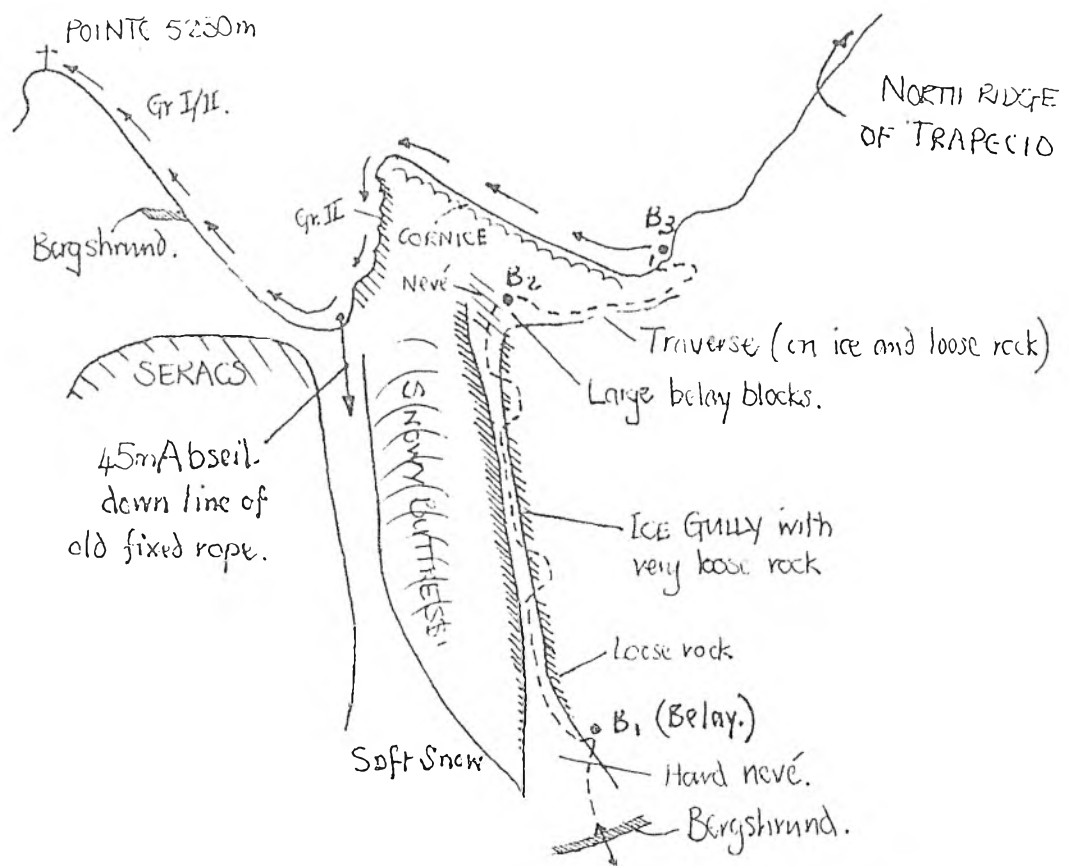 POINTE 5230m
Gr I/II.
NORTH RIDGE
OF TRAPECIO
Bergshrund.
Gr. II
CORNICE
B3
Nevé
B2
Traverse (on ice and loose rock)
SERACS
Large belay blocks.
45m Abseil
down line of
old fixed rope.
SNOWY BUTTRESS
ICE GULLY with
very loose rock
Loose rock
B1 (Belay.)
Soft Snow
Hard nevé.
Bergshrund.